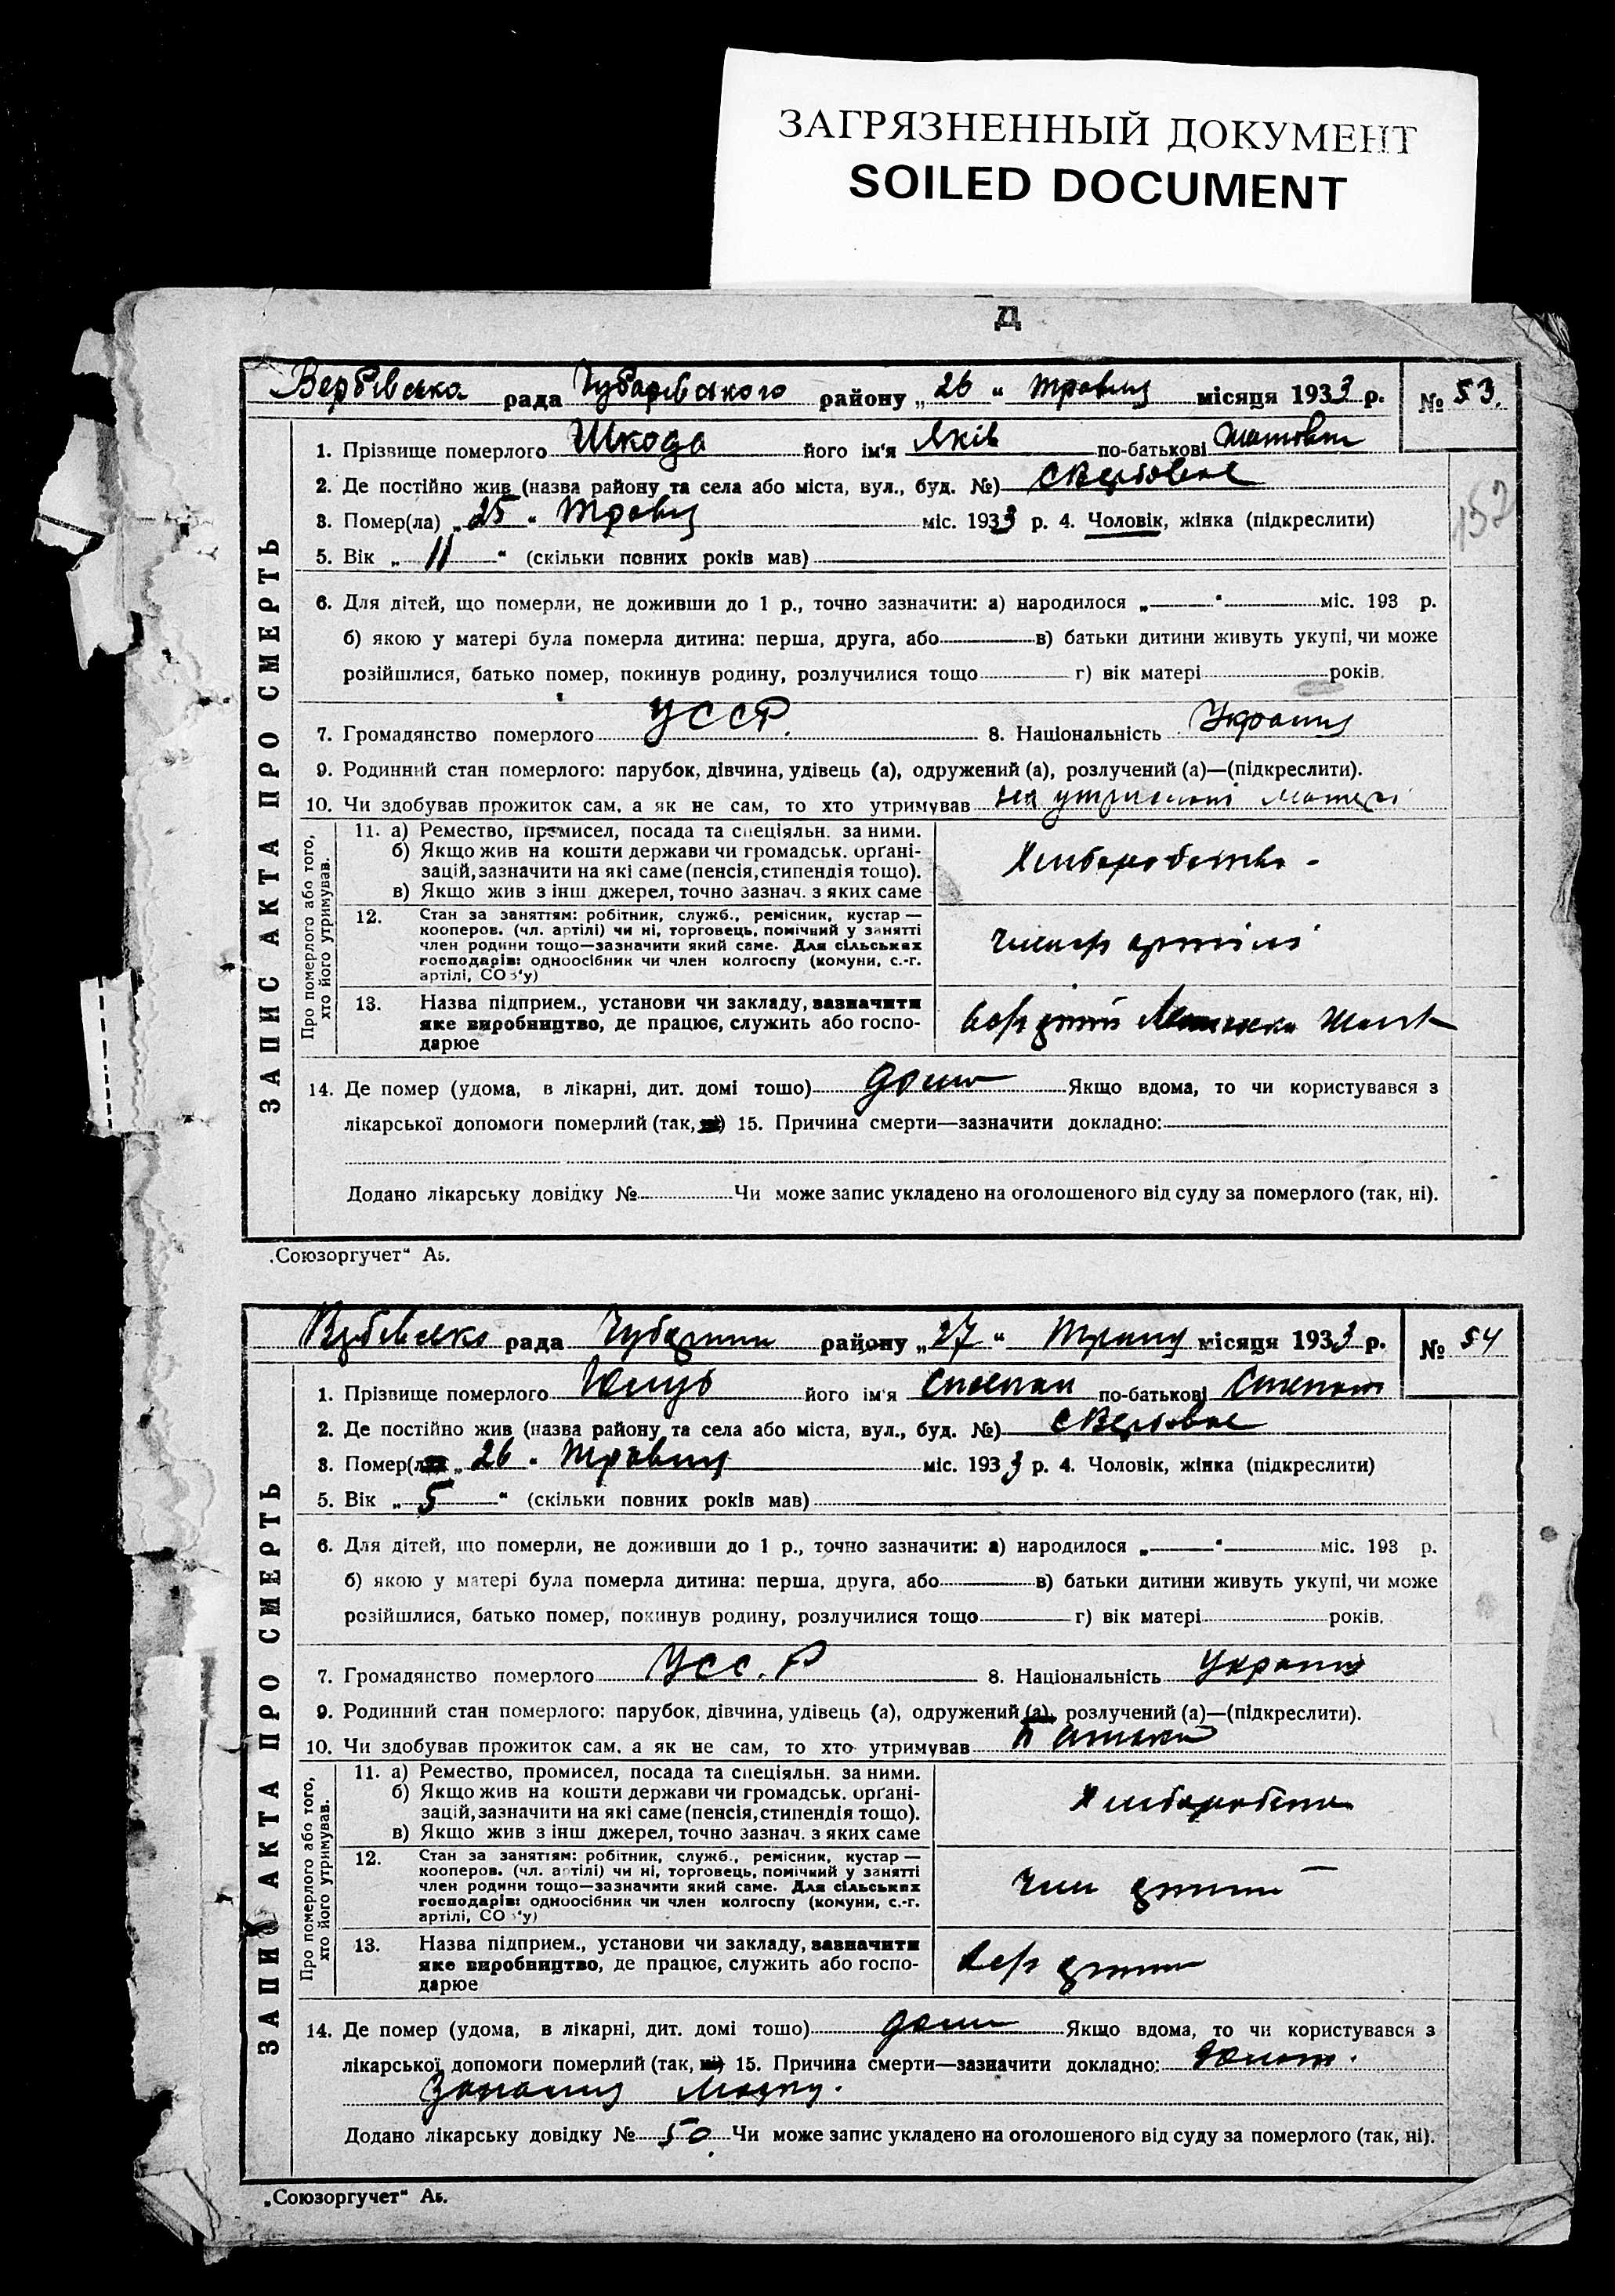 ЗАГРЯЗНЕННЫЙ ДОКУМЕНТ
SOILED DOCUMENT
Д
Вербівська рада Чубарівського району „26“ травня місяця 1933 р. № 53.
1. Прізвище померлого Шкода його ім'я Яків по-батькові
2. Де постійно жив (назва району та села або міста, вул., буд. №) с Вербове
3. Помер(ла) „25“ травня міс. 1933 р. 4. Чоловік, жінка (підкреслити)
5. Вік „11“ (скільки повних років мав)
6. Для дітей, що померли, не доживши до 1 р., точно зазначити: а) народилося „—“ міс. 193 р.
б) якою у матері була померла дитина: перша, друга, або в) батьки дитини живуть укупі, чи може
розійшлися, батько помер, покинув родину, розлучилися тощо г) вік матері років.
7. Громадянство померлого УССР. 8. Національність Україн
9. Родинний стан померлого: парубок, дівчина, удівець (а), одружений (а), розлучений (а)—(підкреслити).
10. Чи здобував прожиток сам, а як не сам, то хто утримував на утриманні матері
ЗАПИС АКТА ПРО СМЕРТЬ
Про померлого або того, хто його утримував.
11. а) Ремество, промисел, посада та спеціяльн. за ними.
б) Якщо жив на кошти держави чи громадськ. орґані-
зацій, зазначити на які саме (пенсія, стипендія тощо).
в) Якщо жив з інш джерел, точно зазнач. з яких саме
Хліборобство
12. Стан за заняттям: робітник, служб., ремісник, кустар —
кооперов. (чл. артілі) чи ні, торговець, помічний у занятті
член родини тощо—зазначити який саме. Для сільських
господарів: одноосібник чи член колгоспу (комуни, с.-г.
артілі, СОЗ'у)
член артілі
13. Назва підприєм., установи чи закладу, зазначити
яке виробництво, де працює, служить або госпо-
дарює
14. Де помер (удома, в лікарні, дит. домі тощо) дома Якщо вдома, то чи користувався з
лікарської допомоги померлий (так, ні) 15. Причина смерти—зазначити докладно:
Додано лікарську довідку № Чи може запис укладено на оголошеного від суду за померлого (так, ні).
„Союзоргучет“ А5.
157
Вербівська рада району „27“ травня місяця 1933 р. № 54
1. Прізвище померлого його ім'я Степан по-батькові Степан
2. Де постійно жив (назва району та села або міста, вул., буд. №) с Вербове
3. Помер(ла) „26“ травня міс. 1933 р. 4. Чоловік, жінка (підкреслити)
5. Вік „5“ (скільки повних років мав)
6. Для дітей, що померли, не доживши до 1 р., точно зазначити: а) народилося „—“ міс. 193 р.
б) якою у матері була померла дитина: перша, друга, або в) батьки дитини живуть укупі, чи може
розійшлися, батько помер, покинув родину, розлучилися тощо г) вік матері років.
7. Громадянство померлого УСС.Р 8. Національність Україн
9. Родинний стан померлого: парубок, дівчина, удівець (а), одружений (а), розлучений (а)—(підкреслити).
10. Чи здобував прожиток сам, а як не сам, то хто утримував Батьки
ЗАПИС АКТА ПРО СМЕРТЬ
Про померлого або того, хто його утримував.
11. а) Ремество, промисел, посада та спеціяльн. за ними.
б) Якщо жив на кошти держави чи громадськ. орґані-
зацій, зазначити на які саме (пенсія, стипендія тощо).
в) Якщо жив з інш джерел, точно зазнач. з яких саме
Хлібороб
12. Стан за заняттям: робітник, служб., ремісник, кустар —
кооперов. (чл. артілі) чи ні, торговець, помічний у занятті
член родини тощо—зазначити який саме. Для сільських
господарів: одноосібник чи член колгоспу (комуни, с.-г.
артілі, СОЗ'у)
член артілі
13. Назва підприєм., установи чи закладу, зазначити
яке виробництво, де працює, служить або госпо-
дарює
14. Де помер (удома, в лікарні, дит. домі тощо) дома Якщо вдома, то чи користувався з
лікарської допомоги померлий (так, ні) 15. Причина смерти—зазначити докладно:
Запалення мозгу.
Додано лікарську довідку № 50 Чи може запис укладено на оголошеного від суду за померлого (так, ні).
„Союзоргучет“ А5.